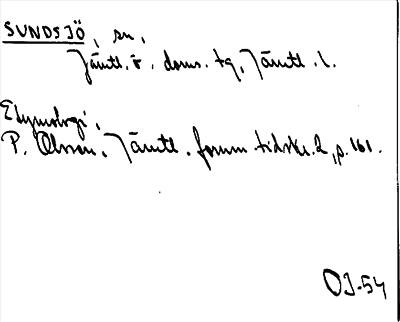 SUNDSJÖ, sn,
Jämtl. ö. doms. tg, Jämtl. l.
Etymologi,
P. Olsson, Jämtl. fornm. tidskr. 2, p. 161.
OJ-54